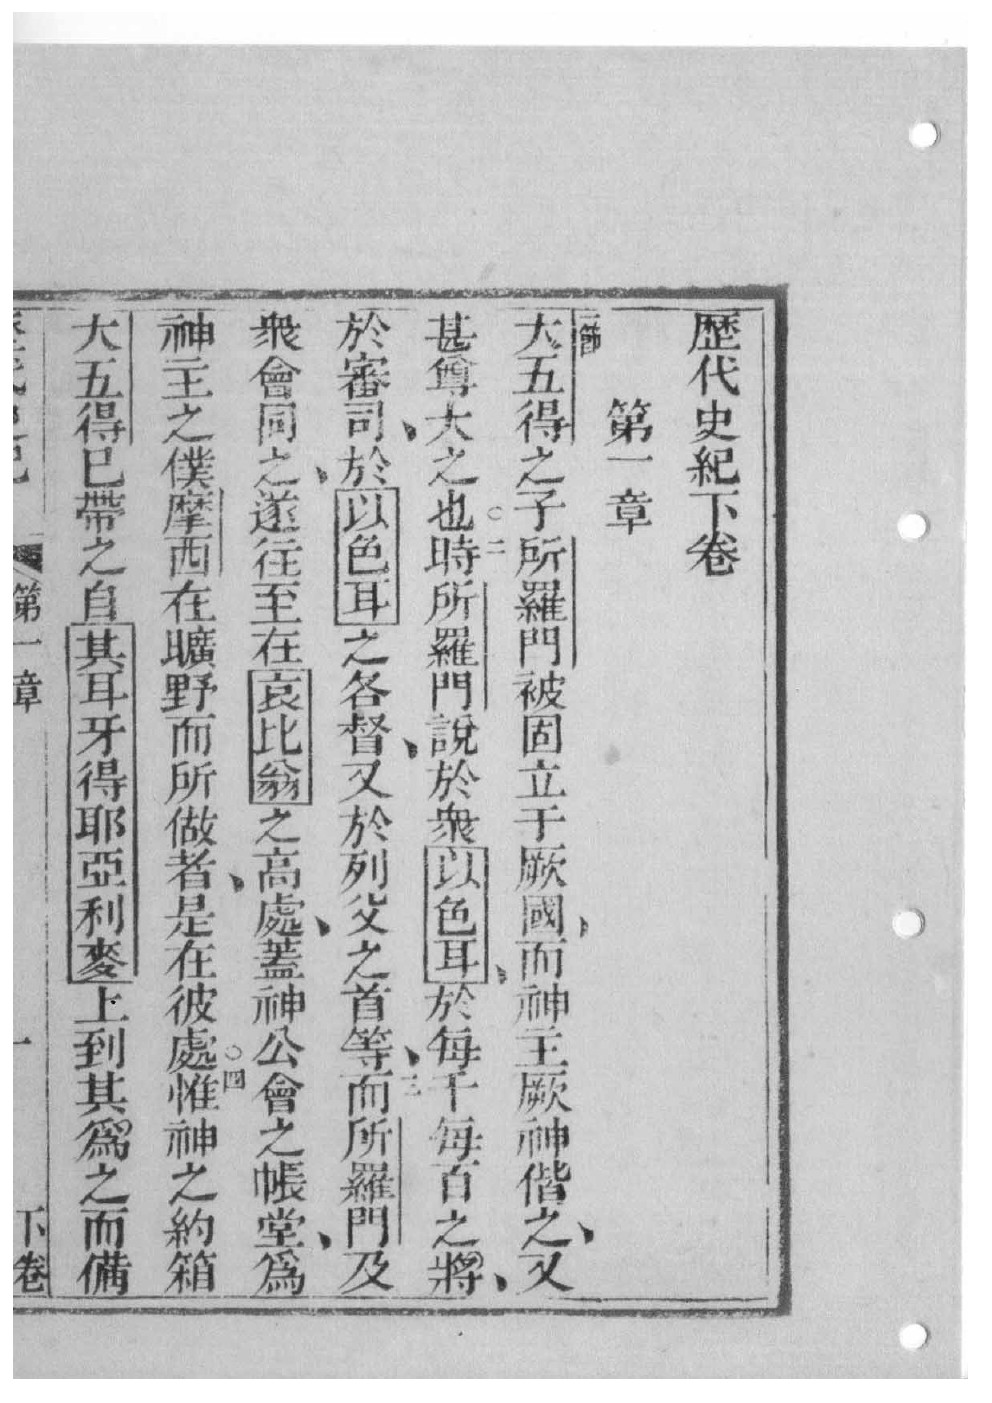 歷代史紀下卷
第一章
一節大五得之子所羅門被固立于厥國、而神主厥神偕之、又
甚尊大之也○二時所羅門說於衆以色耳、於每千每百之將、
於審司、於以色耳之各督、又於列父之首等、三而所羅門及
衆會同之、遂往至在哀比翁之高處、蓋神公會之帳堂、爲
神主之僕摩西在曠野而所做者、是在彼處○四惟神之約箱
大五得已帶之自其耳牙得耶亞利麥上到其爲之而備
第一章 一 下卷